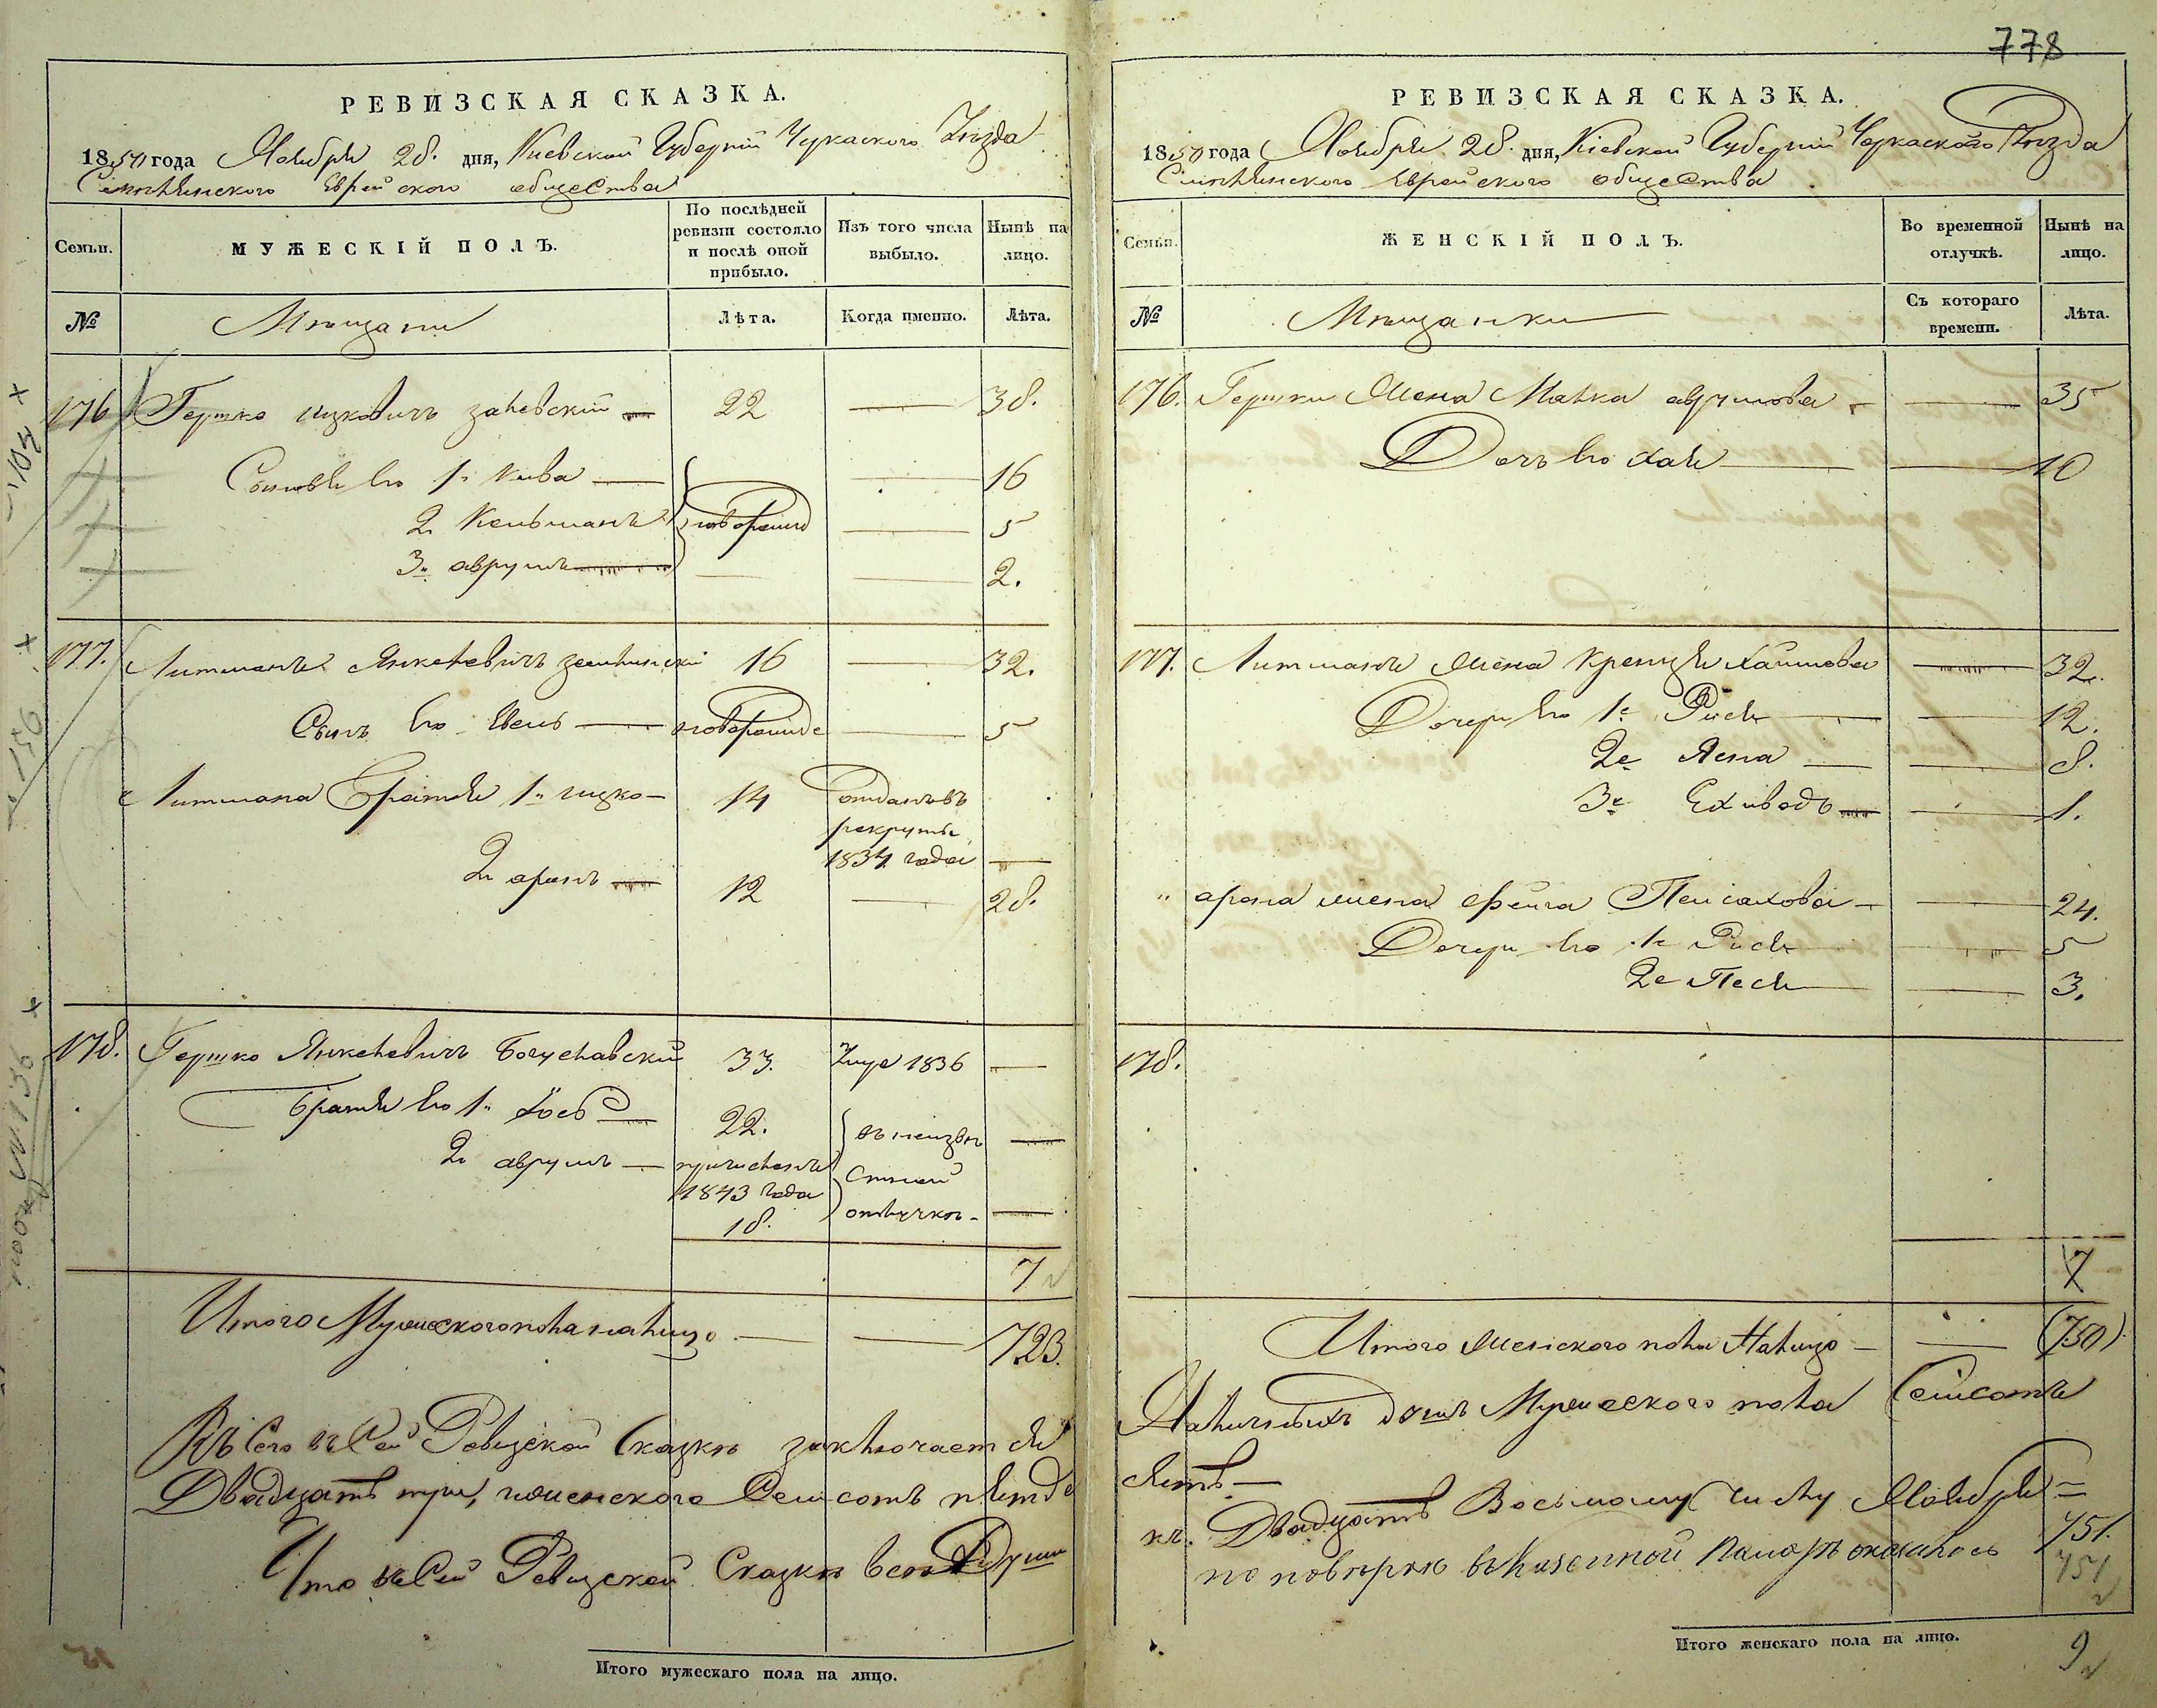 778
РЕВИЗСКАЯ СКАЗКА.
1850 года Ноября 28. дня, Киевской Губерній Черкаского Уѣзда
Смѣлянского Еврейского общества
Семьи.
МУЖЕСКІЙ ПОЛЪ.
По послѣдней ревизіи состояло и послѣ оной прибыло.
Изъ того числа выбыло.
Нынѣ на лицо.
№
Мѣщани
Лѣта.
Когда именно.
Лѣта.
176 Гершко ицковичъ заславскій 22 — 38.
Сыновья его 1й Кива — 16
2й Кельманъ новорожд — 5
3й аврумъ — 2.
177. Литманъ Янкелевичъ 16 — 32.
Сынъ его Евель — новорожде — 5
Литмана братья 1й ицко — 14 отданъ въ
рекруты
1834 года —
2й аронъ 12 — 28.
178. Гершко Янкелевичъ Богуславскій 33. Умре 1836 —
Братья его 1й Іось 22. въ неизвѣ —
2й аврумъ — причисленъ стной
1843 года отлучкѣ —
18.
7
Итого Мужеского пола налицо — — 723.
Въ сей Ревизской Сказкѣ заключается
Двадцать три, и женского Семсотъ пятьде
Что въ Сей Ревизской Сказкѣ всѣ Души
Итого мужескаго пола на лицо.
РЕВИЗСКАЯ СКАЗКА.
1850 года Ноября 28. дня, Кіевской Губерній Черкаского Уѣзда
Смѣлянского Еврейского общества
Семьи.
ЖЕНСКІЙ ПОЛЪ.
Во временной отлучкѣ.
Нынѣ на лицо.
№
Мѣщанки
Съ котораго времени.
Лѣта.
176. Гершки Жена Малка аврумова — 35
Дочь его Хая — 10
177. Литмана жена Крейнця Хаимова — 32.
Дочери его 1я Рися — 12.
2я Яхна — 8.
3я — 1.
" арона жена Фейга Пейсахова — 24.
Дочери его 1я Рися — 5
2я Песя — 3.
178.
7
Итого Женского пола Налицо — — (750)
Наличныхъ душъ Мужеского пола Семсотъ
сятъ —
Двадцать Восьмому числу Ноября
по повѣркѣ въ казенной Палатѣ оказалось 751.
751
Итого женскаго пола на лицо.
9